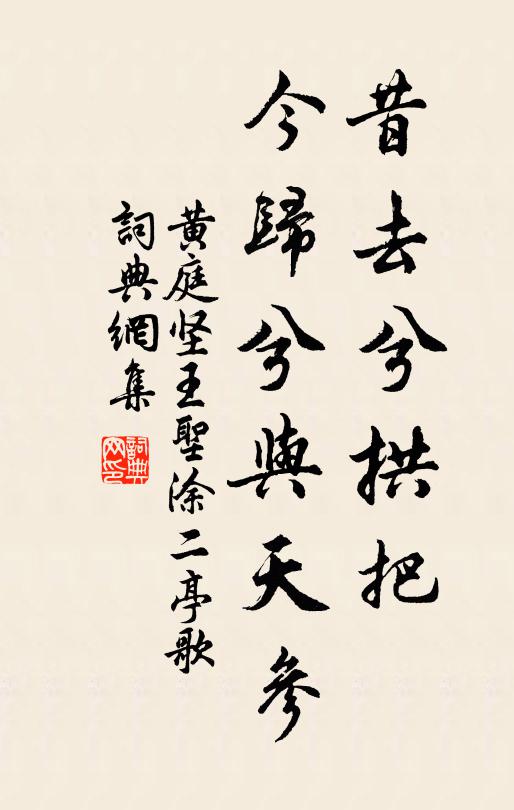 昔去兮拱把
今歸兮與天參
黄庭坚王聖涂二亭歌
詞典網集
詞典网印